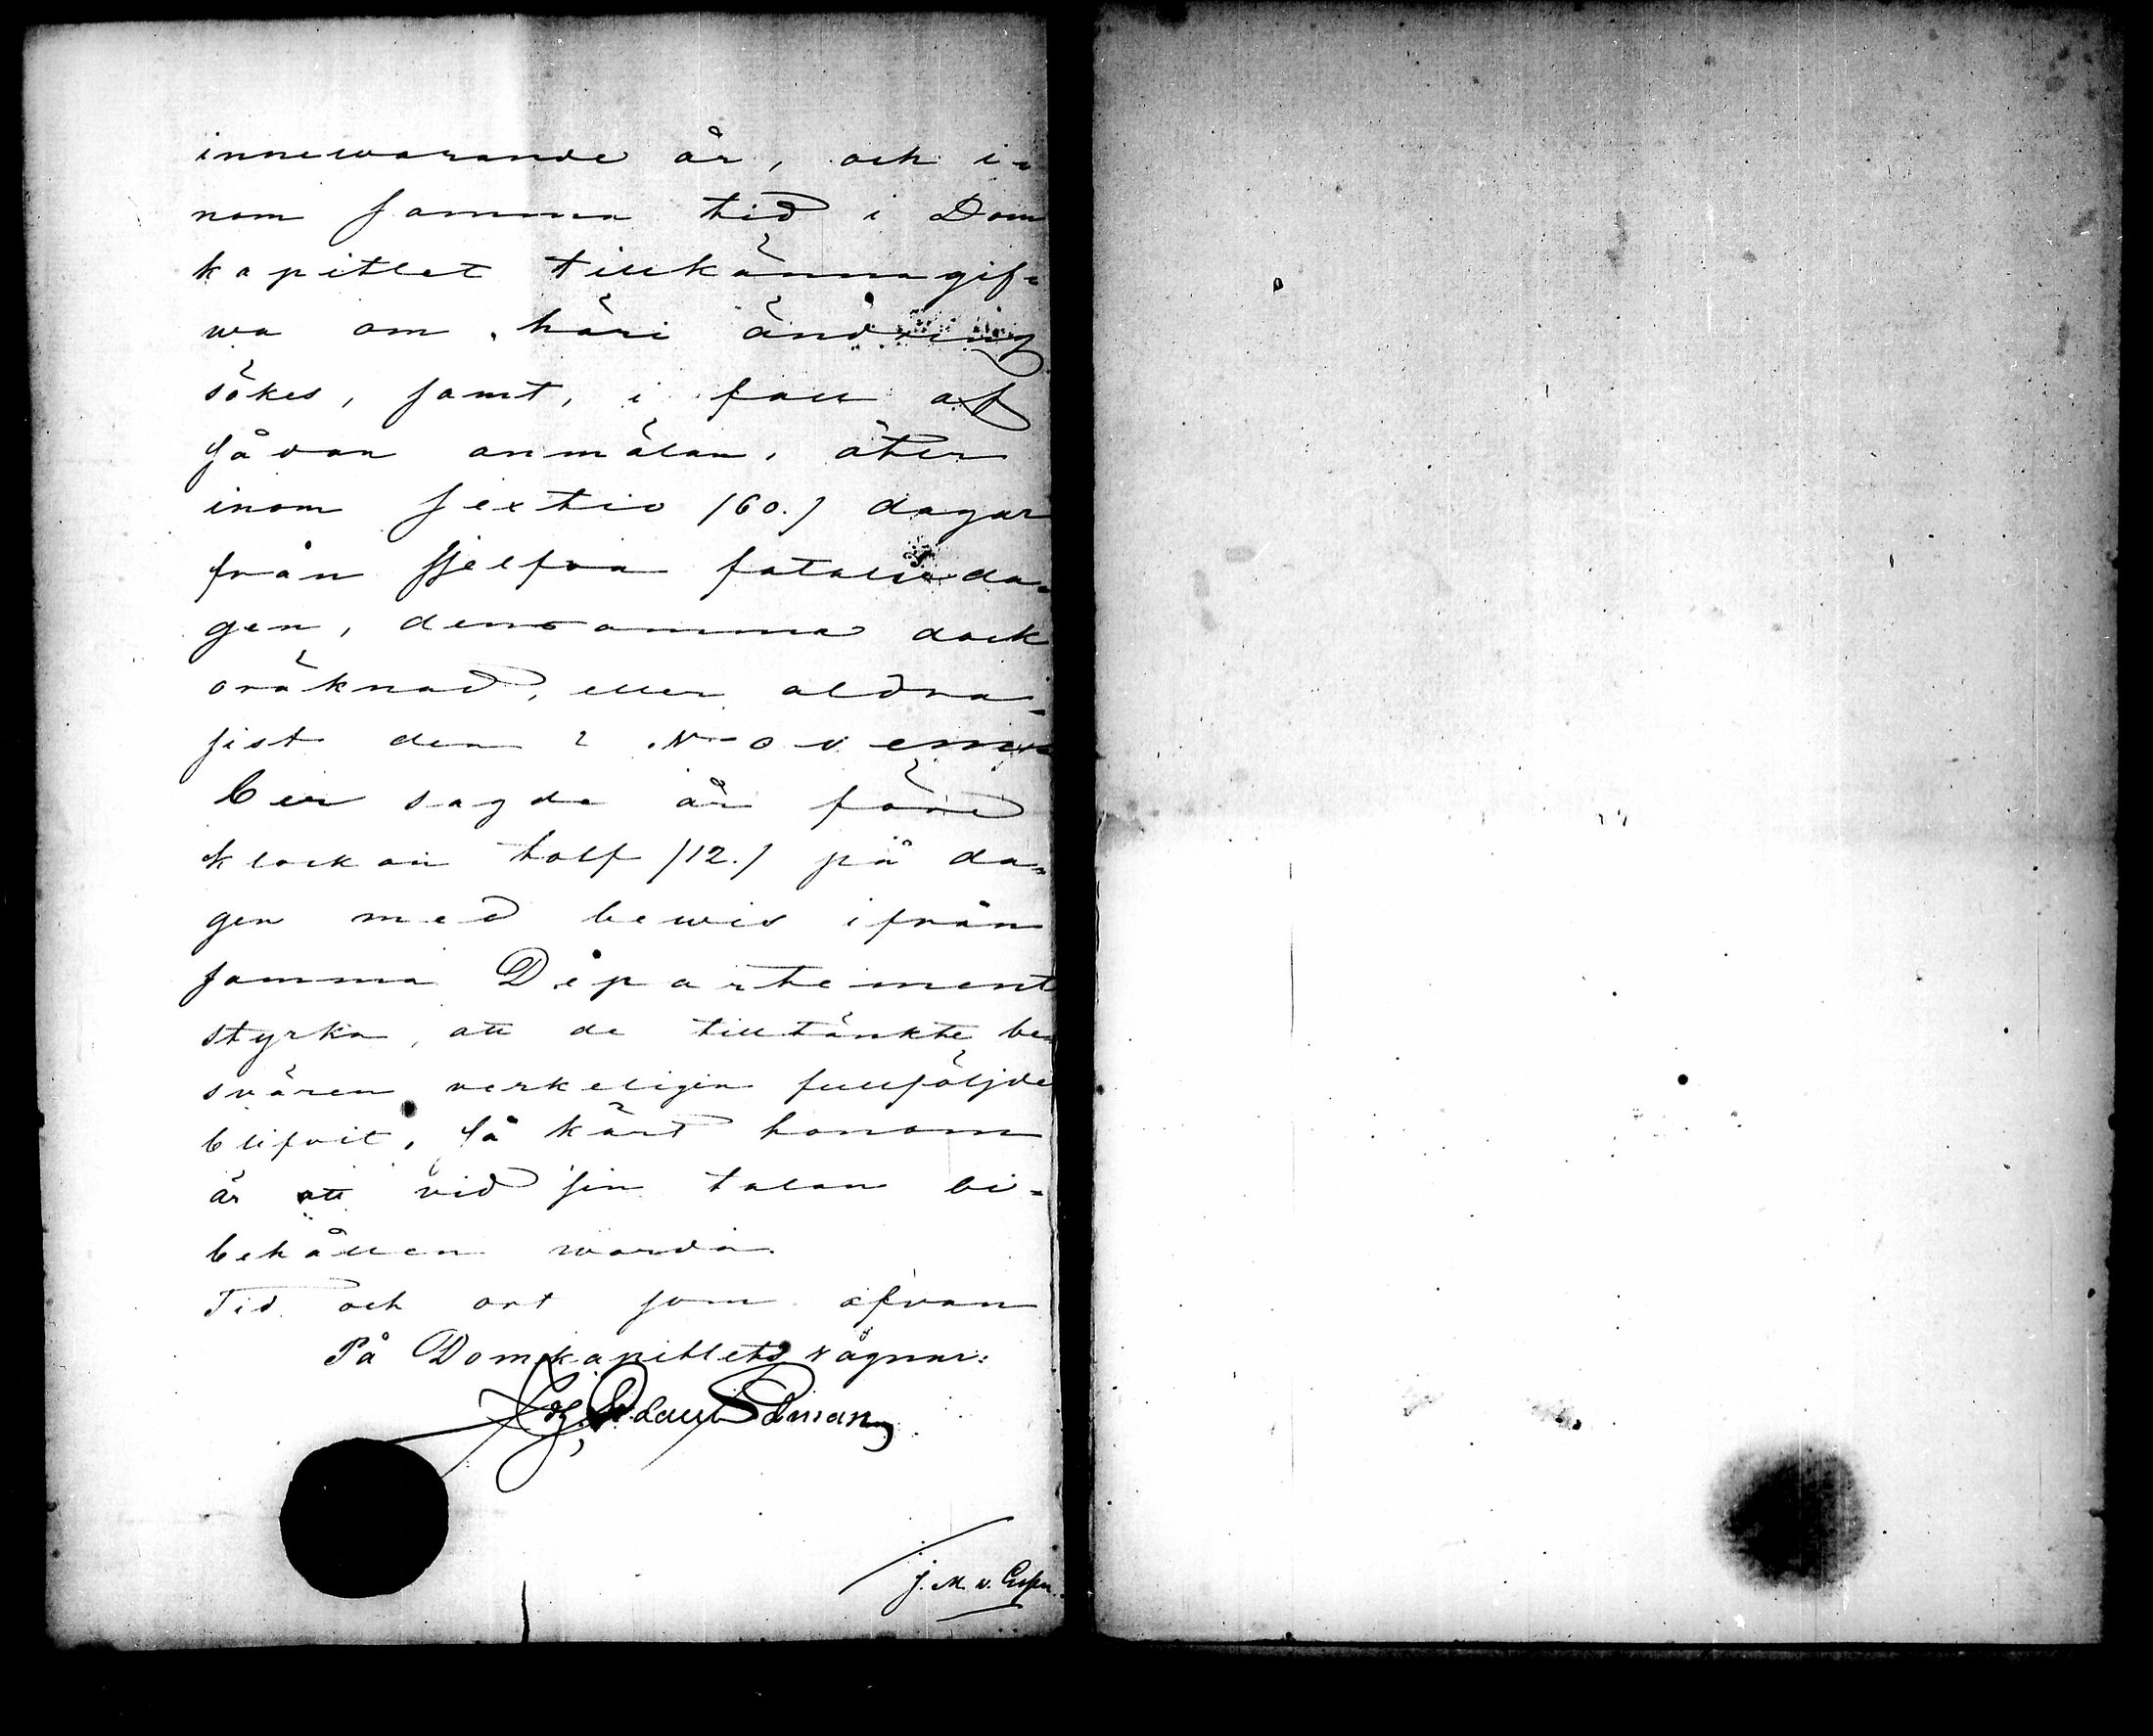 innewarande år, och i-
nom samma tid i Dom
kapitlet tillkännagif-
wa om häri ändring
sökes, samt, i fall af
sådan anmälan, åter
inom sextio /60./ dagar
från sjelfva fatalieda-
gen, densamma dock
oräknad, eller aldra-
sist den 2 Novem-
ber sagde år före
klockan tolf /12./ på da-
gen med bewis ifrån
samma Departement
styrka, att de tilltänkte be-
svären verkeligen fullföljde
blifvit, så kärt honom
är att vid sin talan bi-
behållen warda.
Tid och ort som ofvan
På Domkapitlets vägnar:
J. M. v.